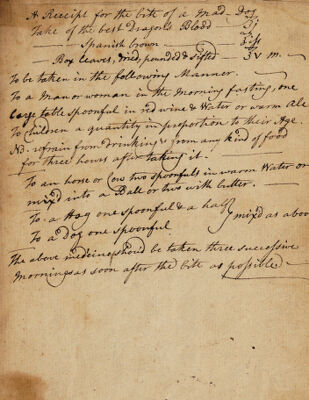 A Receipt for the bite of a Mad Dog
Take of the best Dragons Blood — ʒi
— Spanish brown —
— Box leaves, dried, pounded & sifted — ʒv m.
To be taken in the following Manner.
To a Man or woman in the Morning fasting, one
large table spoonful in red wine & Water or warm Ale
To Children a quantity in proportion to their Age.
NB. refrain from drinking & from any kind of food
for three hours after taking it.
To an horse or Cow two spoonfuls in warm Water or
mix'd into a Ball or two with butter.
To a Hog one spoonful & a half
To a Dog one spoonful } mix'd as above
The above medicine should be taken three successive
Mornings as soon after the bite as possible